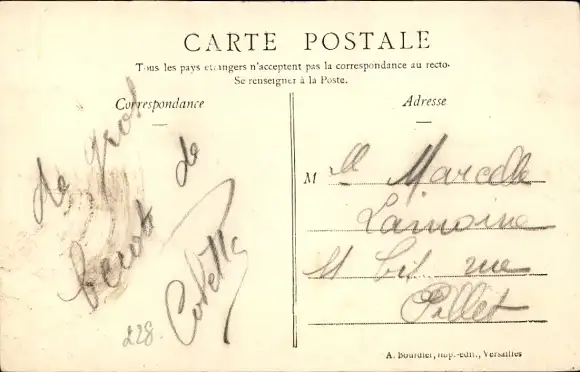 CARTE POSTALE
Tous les pays etrangers n'acceptent pas la correspondance au recto.
Se renseigner à la Poste.
Correspondance
Adresse
de gros
de
Colette
228.
Mlle Marcelle
Lamoine
bis rue
Pillet
A. Bourdier, imp.-edit., Versailles